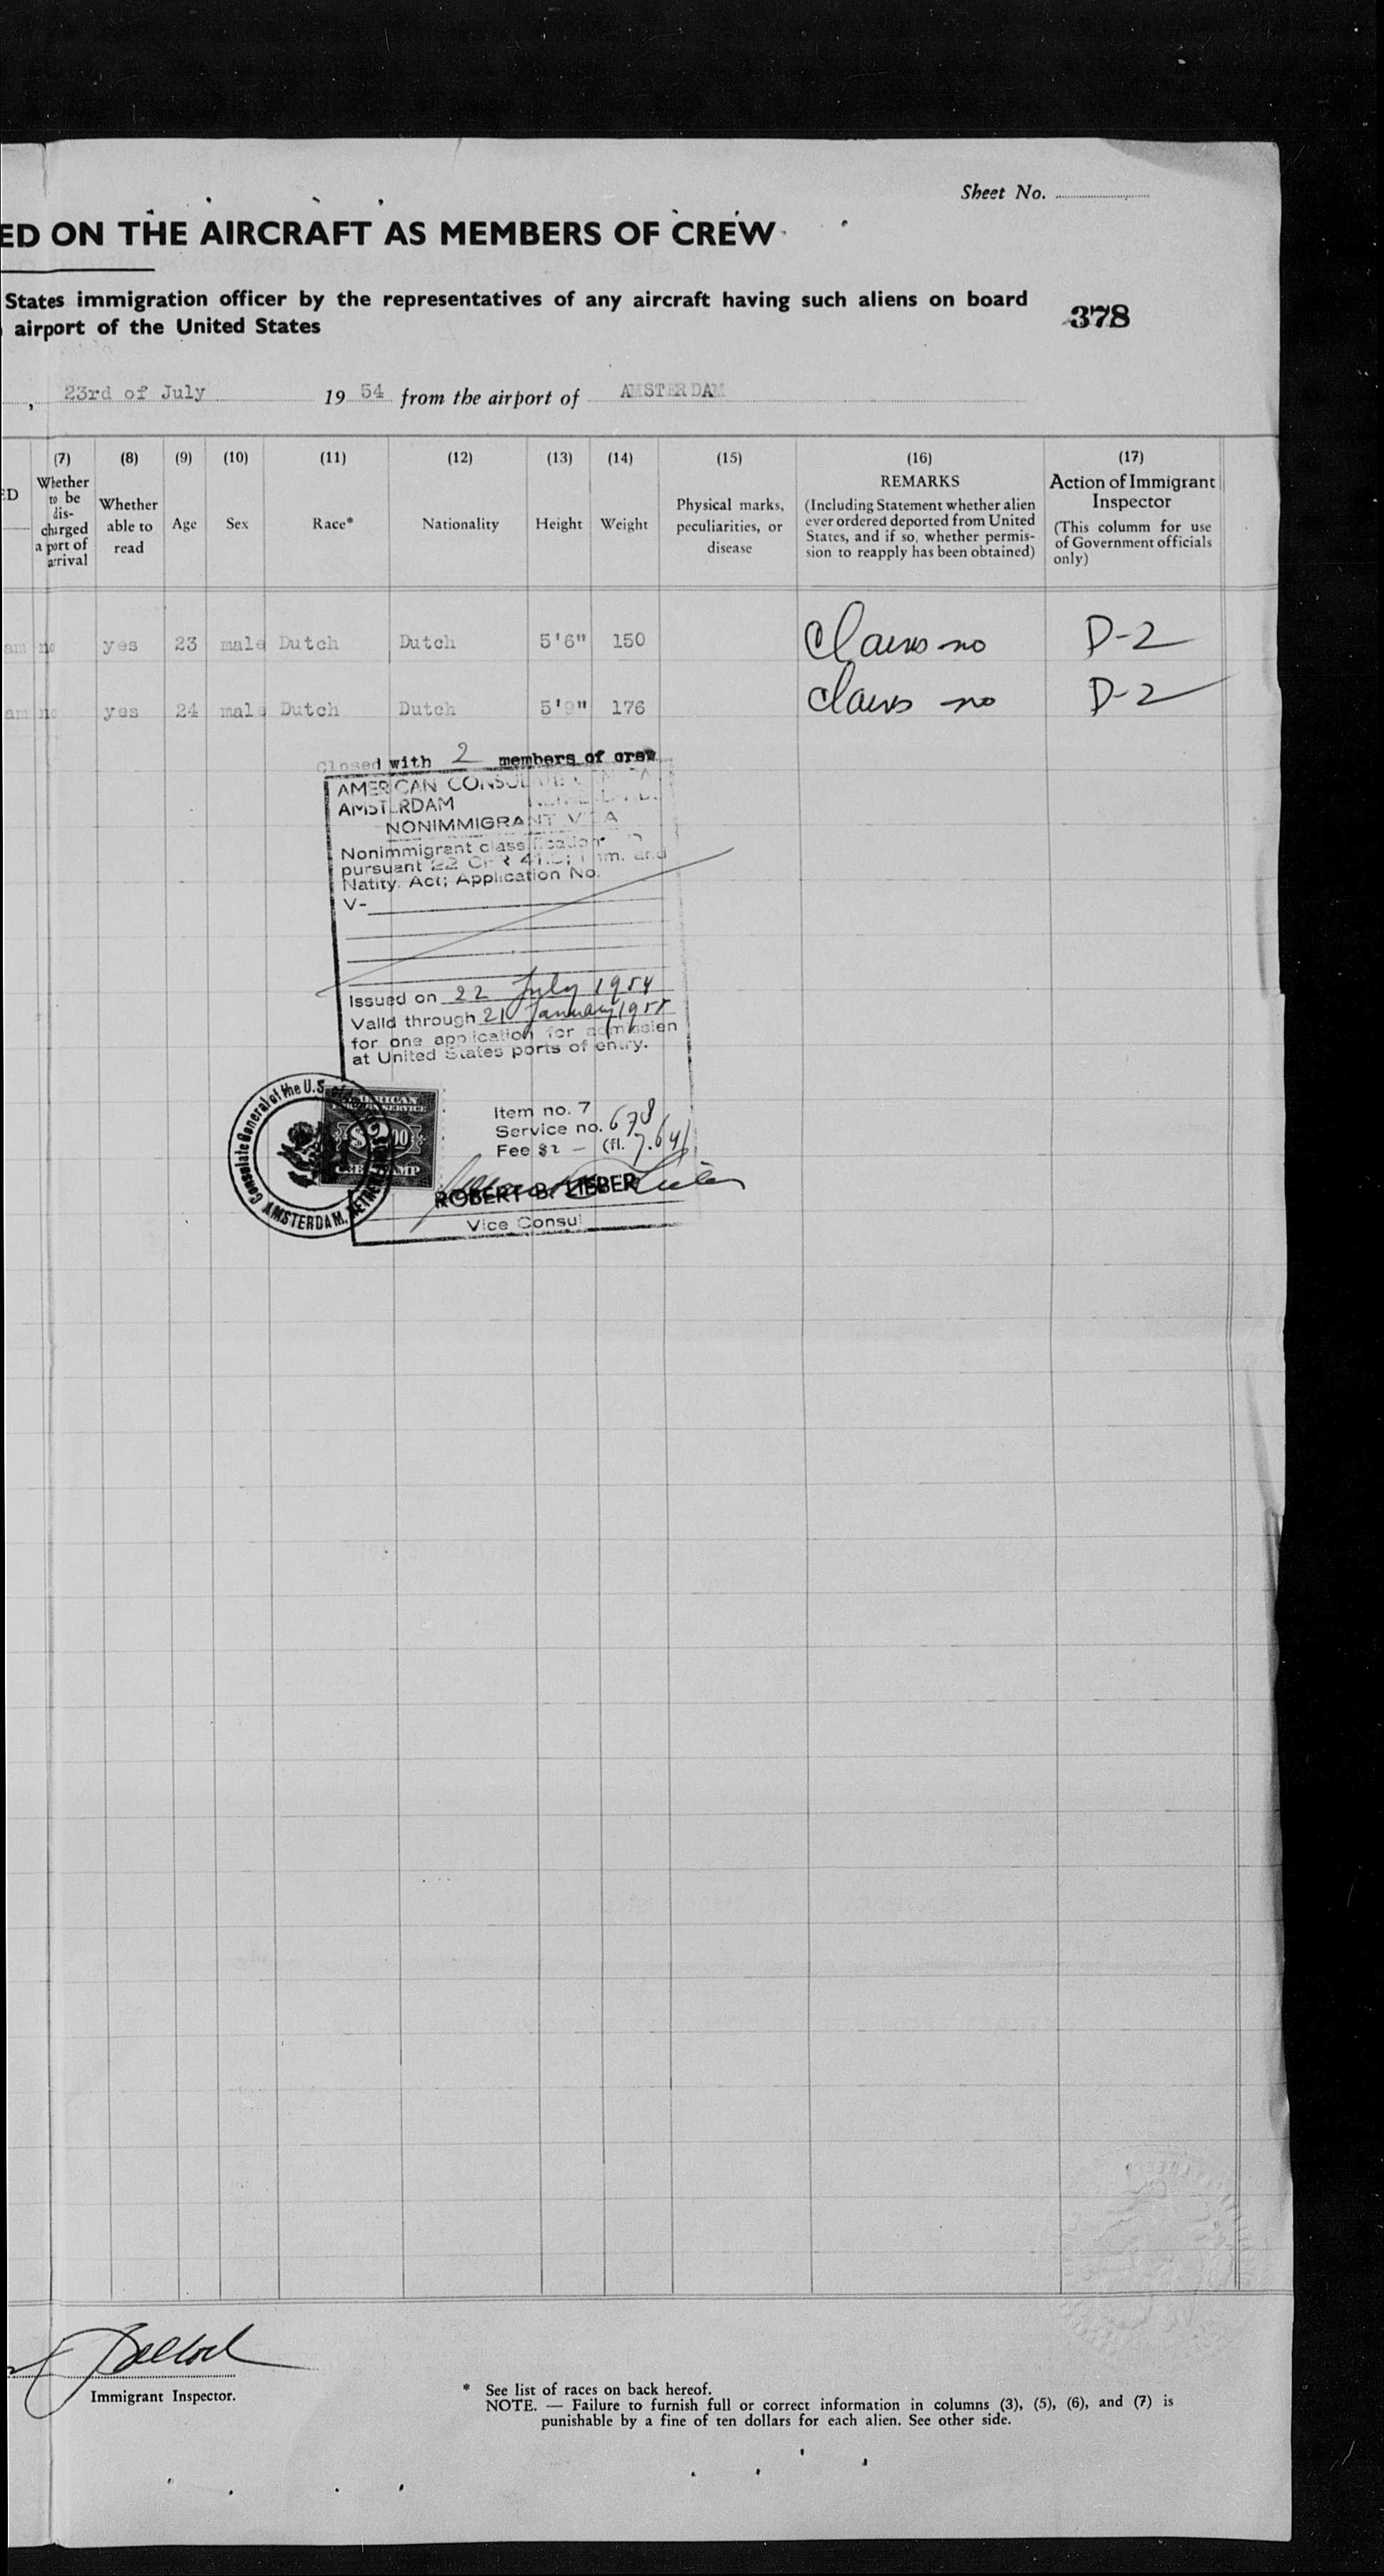 Sheet No.
ED ON THE AIRCRAFT AS MEMBERS OF CREW
States immigration officer by the representatives of any aircraft having such aliens on board
airport of the United States
378
, 23rd of July 19 54 from the airport of AMSTERDAM
(7) (8) (9) (10) (11) (12) (13) (14) (15) (16) (17)
ED
Whether
to be
dis-
charged
a port of
arrival
Whether
able to
read
Age
Sex
Race*
Nationality
Height
Weight
Physical marks,
peculiarities, or
disease
REMARKS
(Including Statement whether alien
ever ordered deported from United
States, and if so, whether permis-
sion to reapply has been obtained)
Action of Immigrant
Inspector
(This columm for use
of Government officials
only)
am no yes 23 male Dutch Dutch 5'6" 150 Claims no D-2
am no yes 24 male Dutch Dutch 5'9" 176 Claims no D-2
Closed with 2 members of crew
AMERICAN CONSULATE
AMSTERDAM
NONIMMIGRANT VISA
Nonimmigrant classification
pursuant 22 CFR 41. ; Imm. and
Natity. Act; Application No.
V-
Issued on 22 July 1954
Valid through 21 January 1955
for one application for admission
at United States ports of entry.
Consulate General of the U.S. of
AMSTERDAM, NETHERLANDS
AMERICAN
FOREIGN SERVICE
$2.00
FEE STAMP
Item no. 7
Service no. 678
Fee $2 - (fl. 7.64)
ROBERT B. LIEBER
Vice Consul
Immigrant Inspector.
* See list of races on back hereof.
NOTE. — Failure to furnish full or correct information in columns (3), (5), (6), and (7) is
punishable by a fine of ten dollars for each alien. See other side.